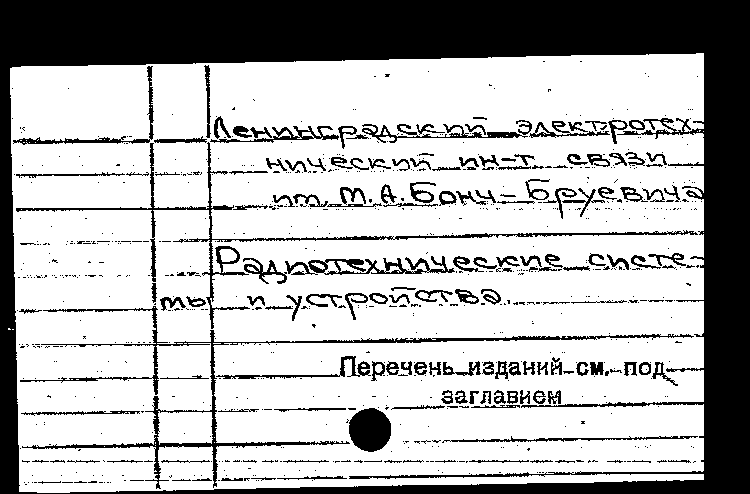 Ленинградский электротех-
нический ин-т связи
им. М.А. Бонч-Бруевича
Радиотехнические систе-
мы и устройства.
Перечень изданий см. под
заглавием